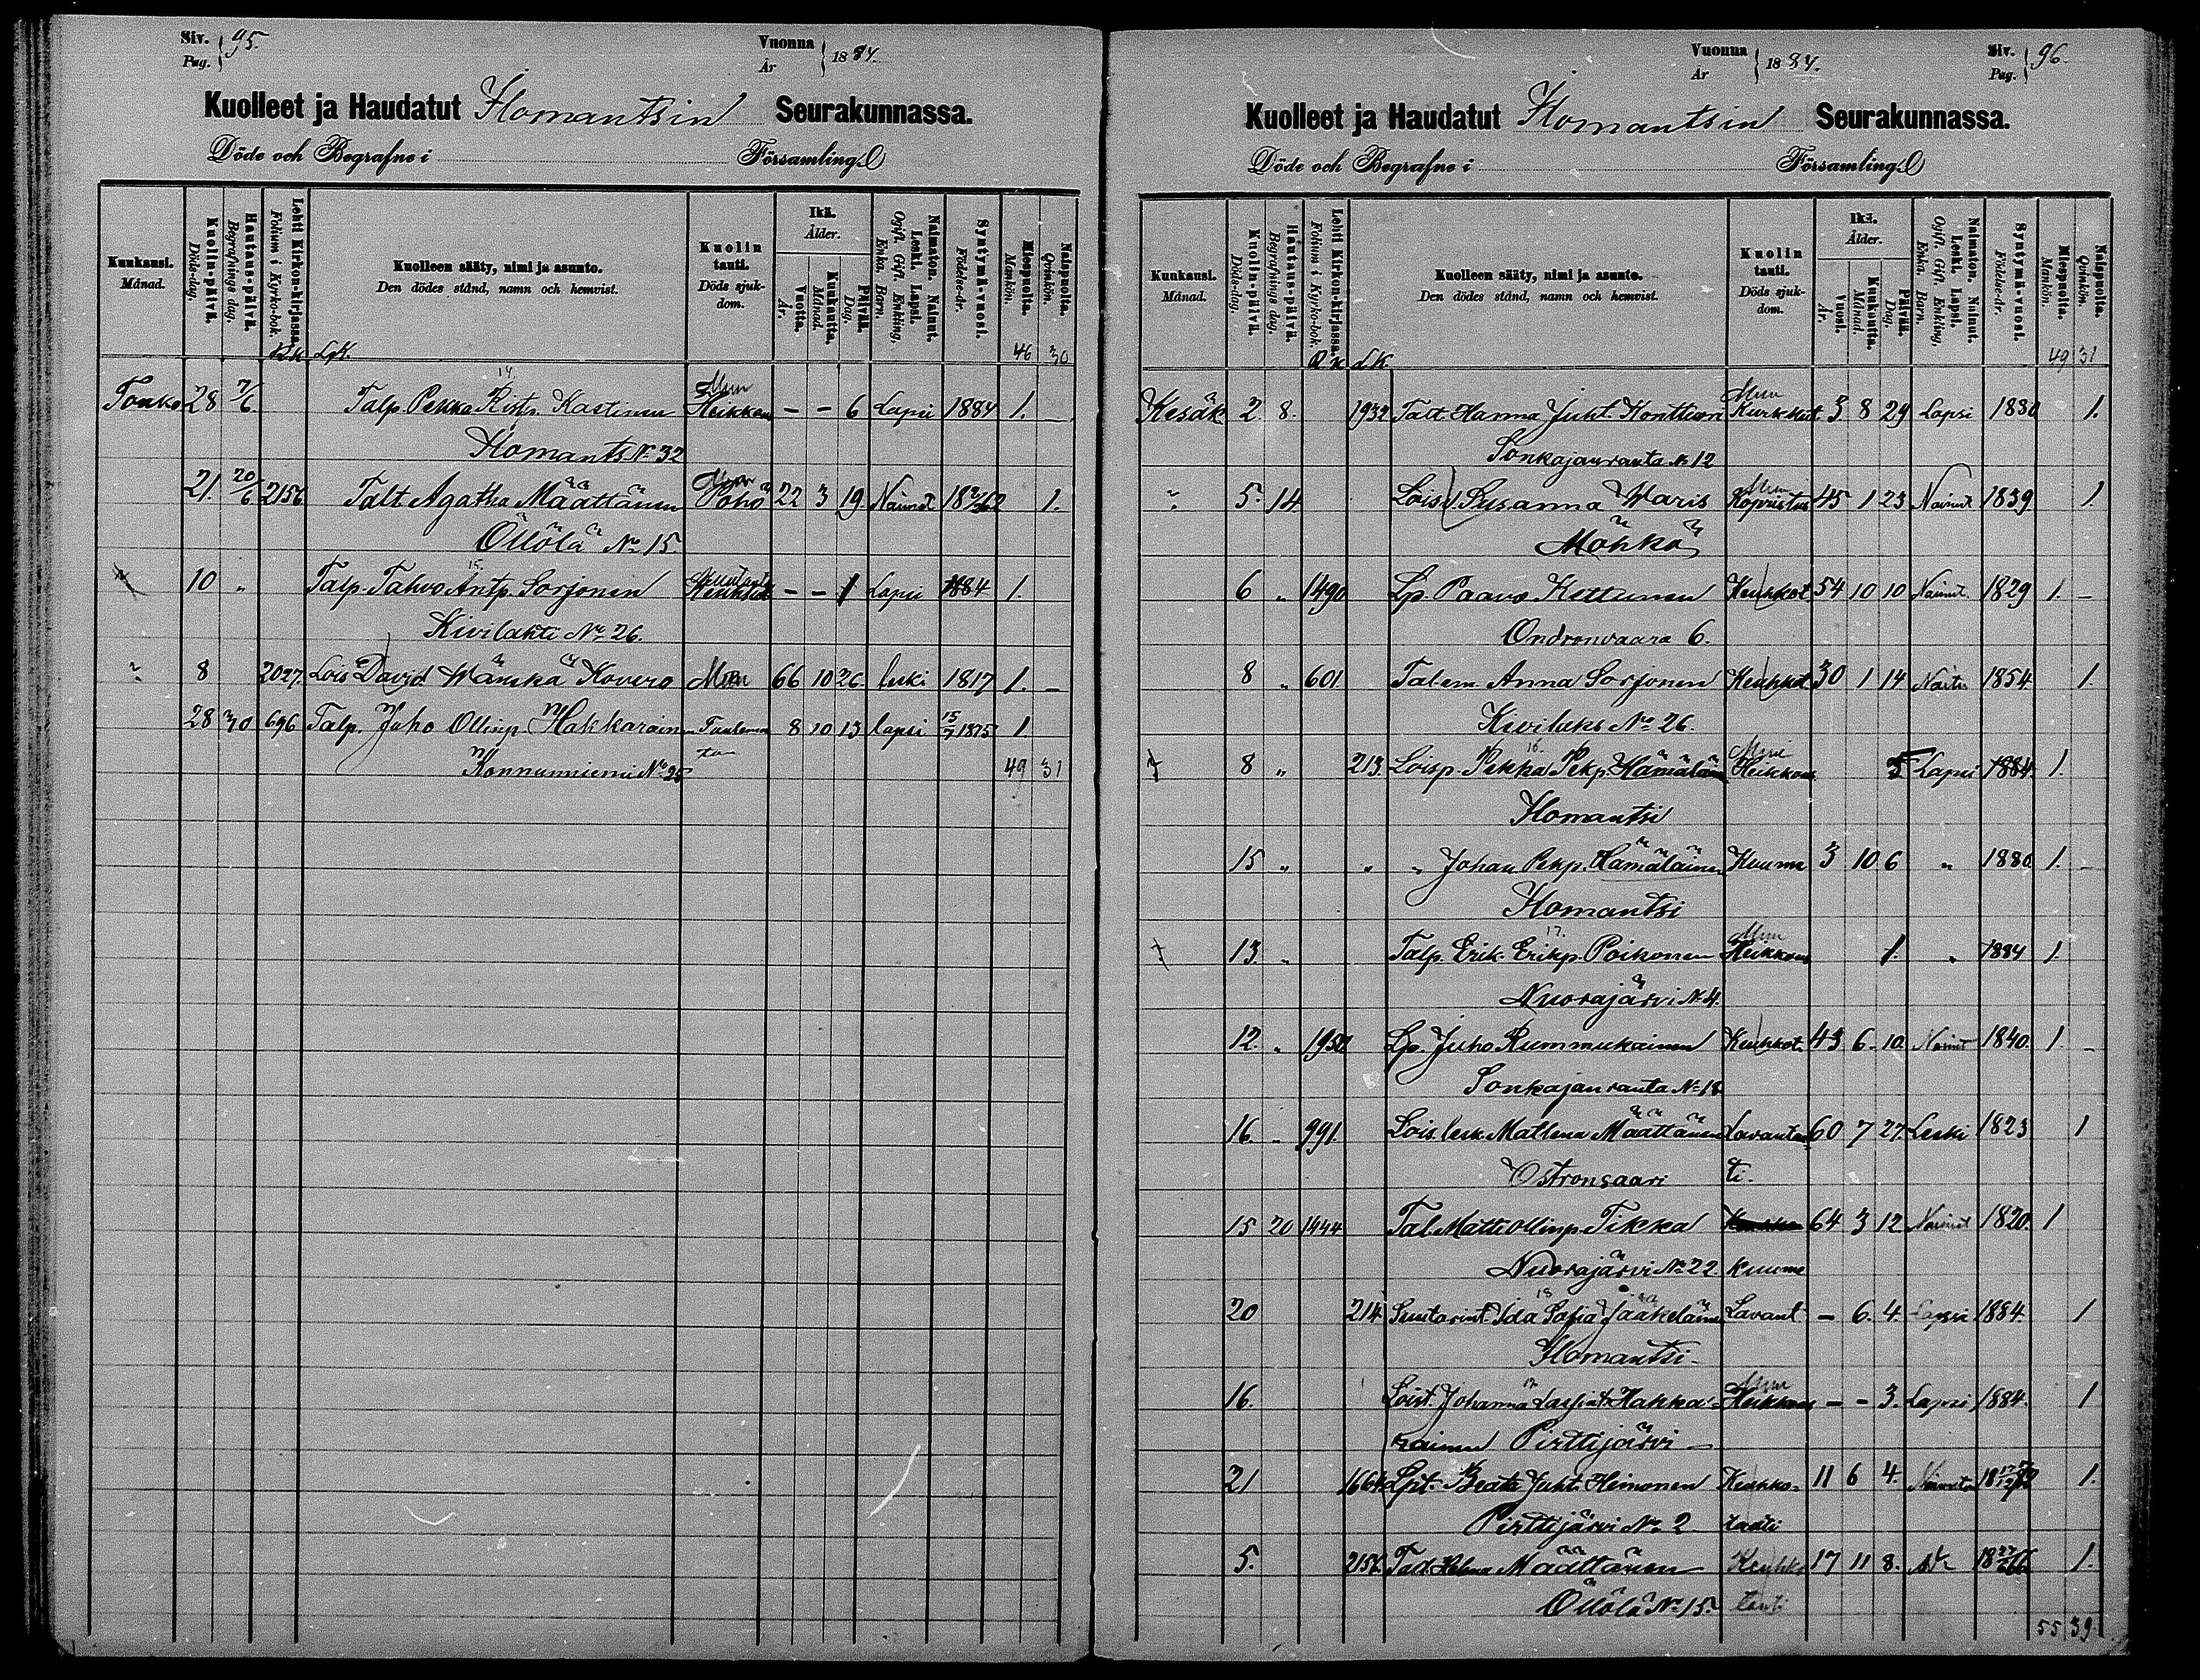 Siv. 95.
Pag.
Vuonna 1884.
År
Kuolleet ja Haudatut Ilomantsin Seurakunnassa.
Döde och Begrafne i Församling.
Kuukausi. Månad.
Kuolin-päivä. Döds-dag.
Hautaus-päivä. Begrafnings dag.
Lehti Kirkon-kirjassa. Folium i Kyrko-bok.
Kuolleen sääty, nimi ja asunto.
Den dödes stånd, namn och hemvist.
Kuolin tauti. Döds sjukdom.
Ikä. Ålder.
Vuotta. År. Kuukautta. Månad. Päivää. Dag.
Naimaton. Nainut. Leski. Lapsi. Ogift. Gift. Enkling, Enka. Barn.
Syntymä-vuosi. Födelse-år.
Miespuolta. Mankön.
Naispuolta. Qvinkön.
Lpk. 46 30
14.
Touko 28 7/6 Talp. Pekka Ristp. Kastinen Muu Heikkous - - 6 Lapsi 1884 1. -
Ilomants № 32
21. 20/6 2156 Talt Agatha Määttänen Pöhö 22 3 19 Nainut 1862 1.
Öllölä № 15.
15.
10 " Talp. Tahvo Antp. Sorjonen - - 1 Lapsi 1884 1.
Kivilahti № 26.
" 8 2027. Lois David Wänskä Kovero Muu 66 10 26 leski 1817 1. -
28 30 636 Talp. Juho Ollinp. Hakkarainen 8 10 13 lapsi 15/7 1875 1.
Konnunniemi № 25 49 31
Vuonna 1884.
År
Siv. 96.
Pag.
Kuolleet ja Haudatut Ilomantsin Seurakunnassa.
Döde och Begrafne i Församling.
Kuukausi. Månad.
Kuolin-päivä. Döds-dag.
Hautaus-päivä. Begrafnings dag.
Lehti Kirkon-kirjassa. Folium i Kyrko-bok.
Kuolleen sääty, nimi ja asunto.
Den dödes stånd, namn och hemvist.
Kuolin tauti. Döds sjukdom.
Ikä. Ålder.
Vuosi. År. Kuukautta. Månad. Päivää. Dag.
Naimaton. Nainut. Leski. Lapsi. Ogift. Gift. Enkling, Enka. Barn.
Syntymä-vuosi. Födelse-år.
Miespuolta. Mankön.
Naispuolta. Qvinkön.
L.k. 49 31
Kesäk. 2. 8. 1932 Talt. Hanna Juht. Konttinen Muu Kurkkut. 3 8 29 Lapsi 1880 1.
Sonkajanranta № 12
" 5. 14 Lois v. Susanna Waris Muu Kopristus 45 1 23 Nainut 1839 1.
Möhkö
6 " 1490 Lp. Paavo Kettunen Keuhkot. 54 10 10 Nainut 1829 1. -
Ondronvaara 6.
8 " 601. Talem. Anna Sorjonen Keuhkot 30 1 14 1854 1.
Kivilaks № 26.
16.
8 " 213. Loisp. Pekka Pekp. Hämäläin Muu Heikkous 5 Lapsi 1884. 1.
Ilomantsi
15 " " " Johan Pekp. Hämäläinen Kuume 3 10 6 " 1880 1. -
Ilomantsi
17.
13. " Talp. Erik Erikp. Poikonen Muu Heikkous 1. " 1884 1.
Nuorajärvi № 4.
12. " 1950 Lp. Juho Rummukainen Keuhkot. 43 6 10. Nainut 1840. 1. -
Sonkajanranta № 18
16 " 991. Lois. lesk. Matlena Määttänen Lavantau 60 7 27. Leski 1823 1
Ostronsaari ti.
15 20 1444 Tal. Matti Ollinp. Tikka 64 3 12 Nainut 1820. 1
Nuorajärvi № 22. kuume
18
20 214 Suutarint. Ida Sofia Jääkeläinen Lavant - 6. 4. Lapsi 1884. 1
Ilomantsi.
16. Loist. Johanna Hakka- Muu Heikkous - - 3. Lapsi 1884. 1
rainen Pirttijärvi -
21 1664 Lpt. Beata Juht. Heimonen Keuhko- 11 6 4. 1.
Pirttijärvi № 2 tauti
5. 2156 Tad. Helena Määttänen Keuhko 17 11 8. 1.
Öllölä № 15. tauti
55 39